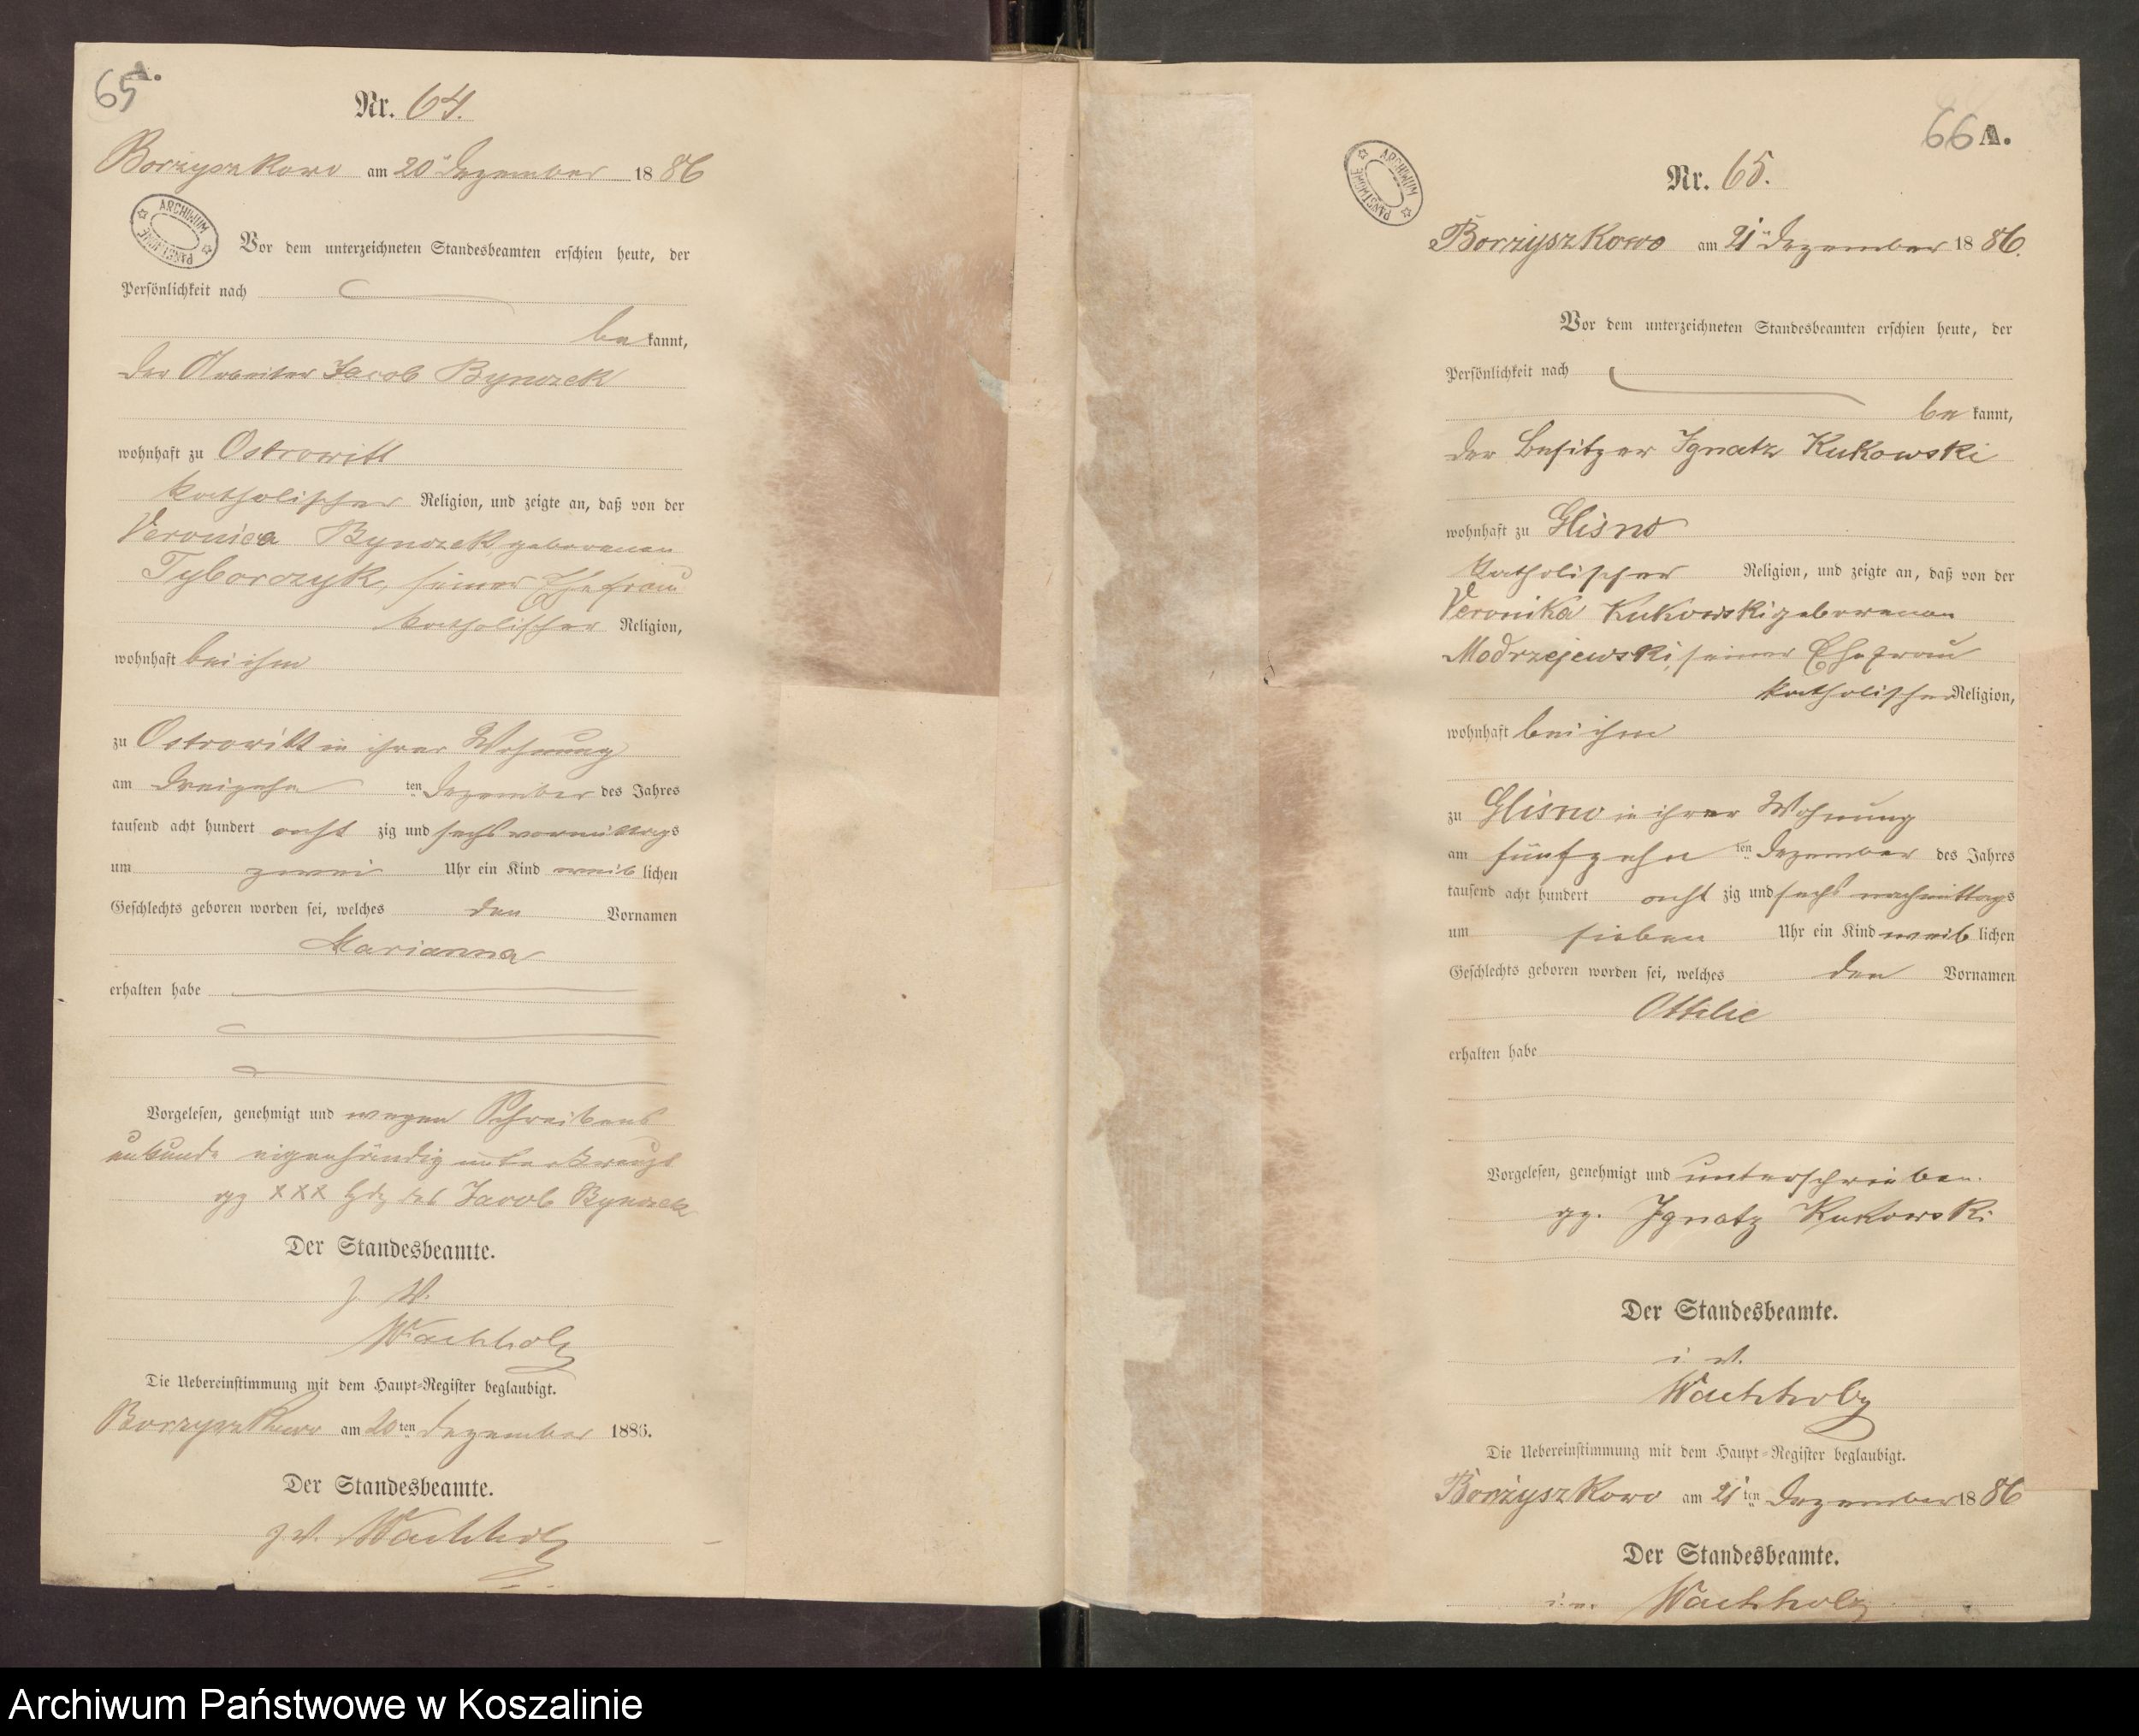 65 A.
Nr. 64.
Borzyszkowo am 20ⁿ Dezember 1886
ARCHIWUM PAŃSTWOWE
Vor dem unterzeichneten Standesbeamten erschien heute, der
Persönlichkeit nach
be kannt,
der Arbeiter Jacob
wohnhaft zu Ostrowitt
katholischer Religion, und zeigte an, daß von der
Veronica geborenen
Tyborczyk, seiner Ehefrau
katholischer Religion,
wohnhaft bei ihm
zu Ostrowitt in ihrer Wohnung
am dreizehn ten Dezember des Jahres
tausend acht hundert acht zig und sechs vormittags
um zwei Uhr ein Kind weib lichen
Geschlechts geboren worden sei, welches den Vornamen
Marianna
erhalten habe
Vorgelesen, genehmigt und wegen Schreibens
unkunde eigenhändig unterkreuzt
gz xxx Hdz des Jacob
Der Standesbeamte.
J. V.
Wachholz
Die Uebereinstimmung mit dem Haupt-Register beglaubigt.
Borzyszkowo am 20 ten Dezember 1886.
Der Standesbeamte.
J. V. Wachholz
66 A.
ARCHIWUM PAŃSTWOWE
Nr. 65.
Borzyszkowo am 21ⁿ Dezember 1886.
Vor dem unterzeichneten Standesbeamten erschien heute, der
Persönlichkeit nach
be kannt,
der Besitzer Ignatz Kukowski
wohnhaft zu Glisno
katholischer Religion, und zeigte an, daß von der
Veronika Kukowski geborenen
Modrzejewski, seiner Ehefrau
katholischer Religion,
wohnhaft bei ihm
zu Glisno in ihrer Wohnung
am fünfzehn ten Dezember des Jahres
tausend acht hundert acht zig und sechs nachmittags
um sieben Uhr ein Kind weib lichen
Geschlechts geboren worden sei, welches den Vornamen
Ottilie
erhalten habe
Vorgelesen, genehmigt und unterschrieben.
gz. Ignatz Kukowski
Der Standesbeamte.
i. V.
Wachholz
Die Uebereinstimmung mit dem Haupt-Register beglaubigt.
Borzyszkowo am 21 ten Dezember 1886
Der Standesbeamte.
i. V. Wachholz
Archiwum Państwowe w Koszalinie